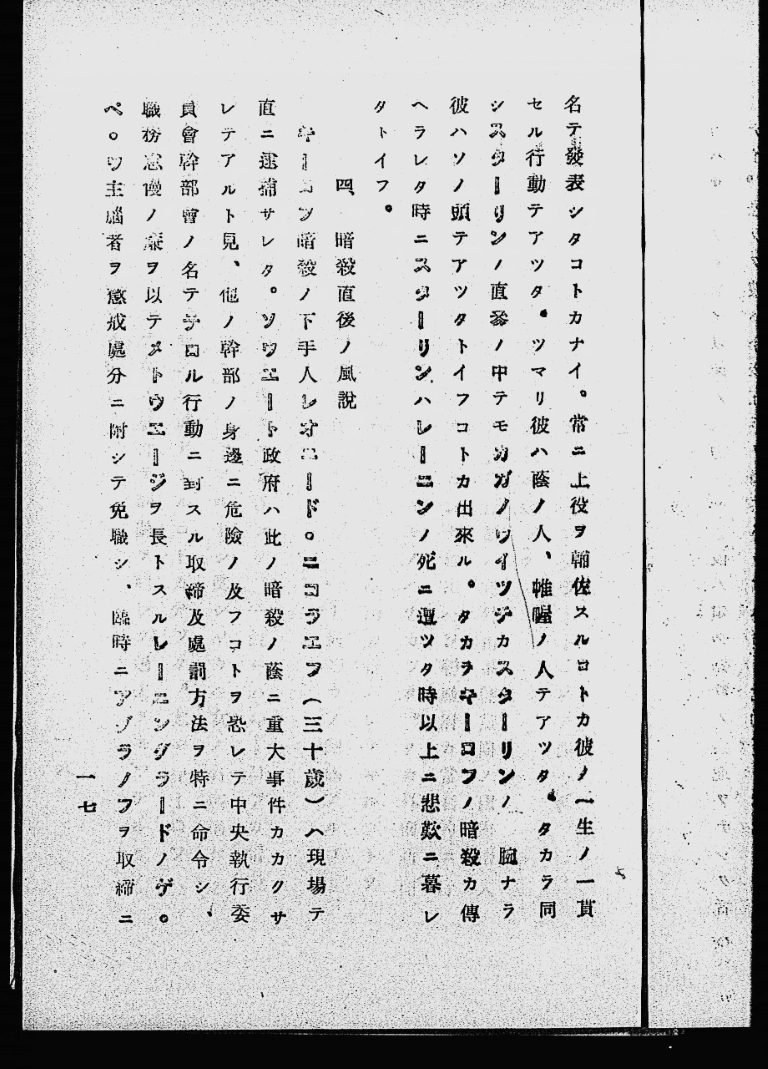 名テ發表シタコトカナイ。常ニ上役ヲ輔佐スルコトカ彼ノ一生ノ一貫
セル行動テアツタ。ツマリ彼ハ蔭ノ人、帷幄ノ人テアツタ。タカラ同
シスターリンノ直參ノ中テモカガノウイツチカスターリンノ腕ナラ
彼ハソノ頭テアツタトイフコトカ出來ル。タカラキーロフノ暗殺カ傳
ヘラレタ時ニスターリンハレーニンノ死ニ遭ツタ時以上ニ悲歎ニ暮レ
タトイフ。
四、暗殺直後ノ風說
キーロフ暗殺ノ下手人レオニード。ニコラエフ(三十歲)ハ現場テ
直ニ逮捕サレタ。ソウエート政府ハ此ノ暗殺ノ蔭ニ重大事件カカクサ
レテアルト見、他ノ幹部ノ身邊ニ危險ノ及フコトヲ恐レテ中央執行委
員會幹部會ノ名テテロル行動ニ對スル取締及處罰方法ヲ特ニ命令シ、
職務怠慢ノ廉ヲ以テメトウエージヲ長トスルレーニングラードノゲ。
ペ。ウ主腦者ヲ懲戒處分ニ附シテ免職シ、臨時ニアグラノフヲ取締ニ
一七